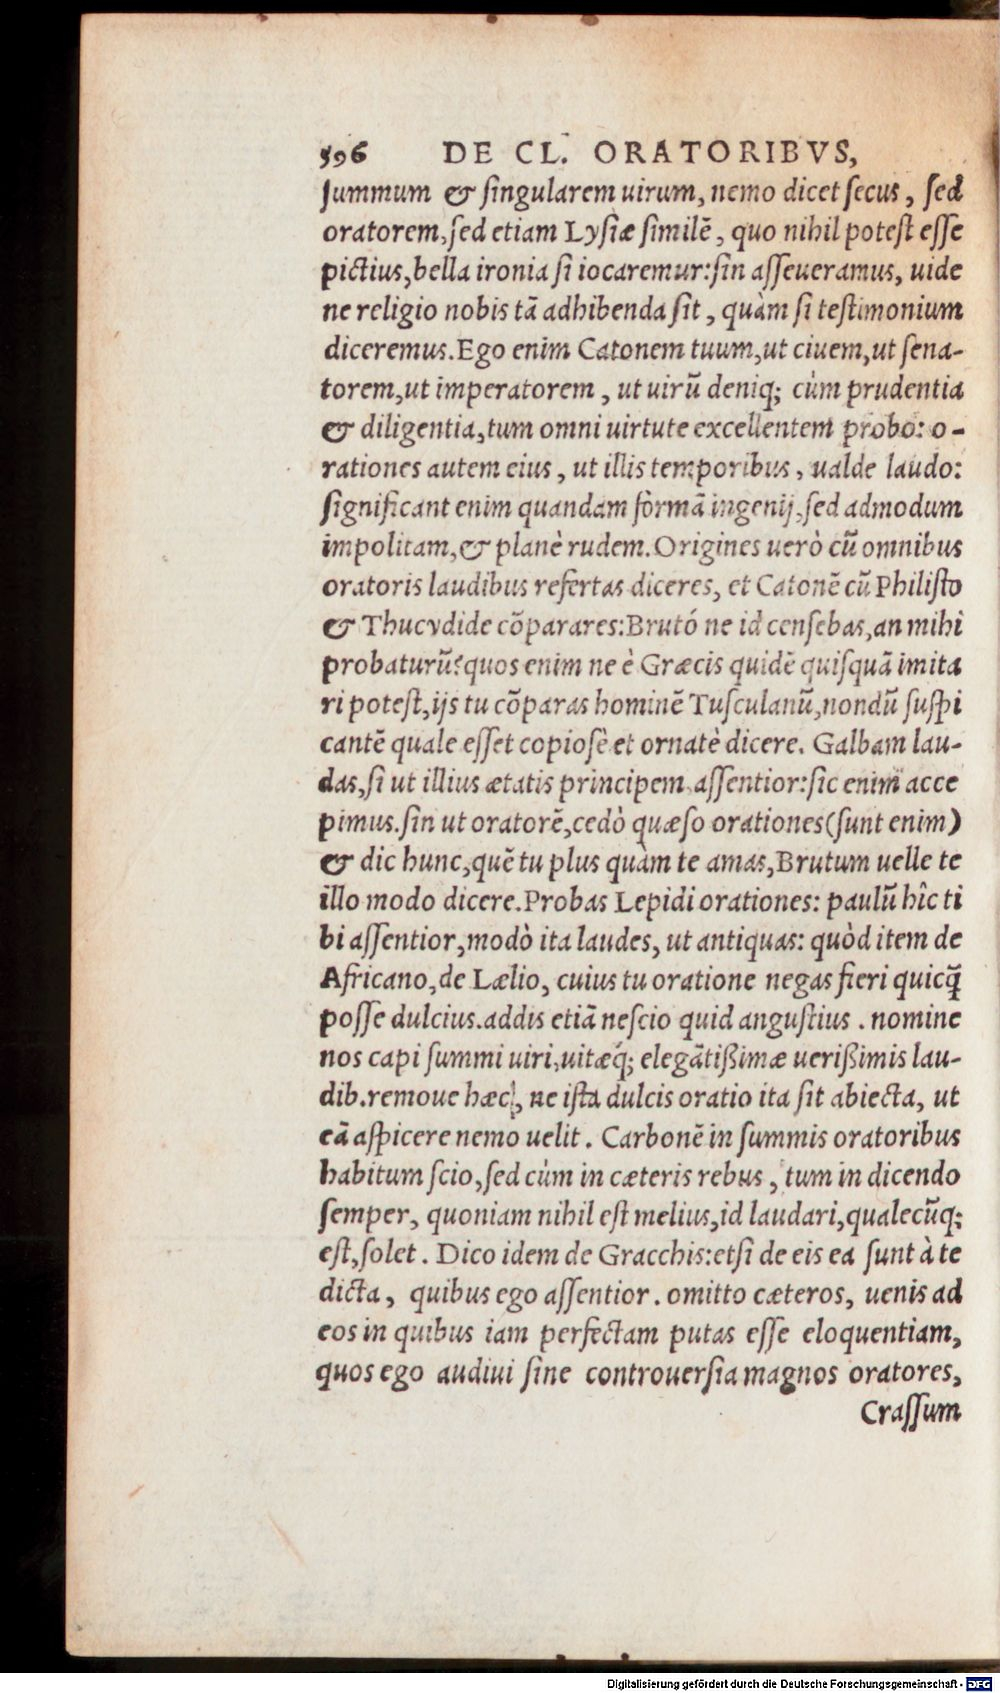 596 DE CL. ORATORIBVS,
summum & singularem uirum, nemo dicet secus, sed
oratorem, sed etiam Lysiæ similē, quo nihil potest esse
pictius, bella ironia si iocaremur: sin asseueramus, uide
ne religio nobis tā adhibenda sit, quàm si testimonium
diceremus. Ego enim Catonem tuum, ut ciuem, ut sena-
torem, ut imperatorem, ut uirū deniq; cùm prudentia
& diligentia, tum omni uirtute excellentem probo: o-
rationes autem eius, ut illis temporibus, ualde laudo:
significant enim quandam formā ingenij, sed admodum
impolitam, & planè rudem. Origines uerò cū omnibus
oratoris laudibus refertas diceres, et Catonē cū Philisto
& Thucydide cōparares: Brutó ne id censebas, an mihi
probaturū? quos enim ne è Græcis quidē quisquā imita
ri potest, ijs tu cōparas hominē Tusculanū, nondū suspi
cantē quale esset copiosè et ornatè dicere. Galbam lau-
das, si ut illius ætatis principem assentior: sic enim acce
pimus. sin ut oratorē, cedò quæso orationes (sunt enim)
& dic hunc, quē tu plus quàm te amas, Brutum uelle te
illo modo dicere. Probas Lepidi orationes: paulū hîc ti
bi assentior, modò ita laudes, ut antiquas: quòd item de
Africano, de Lælio, cuius tu oratione negas fieri quicq̃
posse dulcius. addis etiā nescio quid angustius. nomine
nos capi summi uiri, uitæq́; elegātißimæ uerißimis lau-
dib. remoue hæc, ne ista dulcis oratio ita sit abiecta, ut
eā aspicere nemo uelit. Carbonē in summis oratoribus
habitum scio, sed cùm in cæteris rebus, tum in dicendo
semper, quoniam nihil est melius, id laudari, qualecūq;
est, solet. Dico idem de Gracchis: etsi de eis ea sunt à te
dicta, quibus ego assentior. omitto cæteros, uenis ad
eos in quibus iam perfectam putas esse eloquentiam,
quos ego audiui sine controuersia magnos oratores,
Crassum
Digitalisierung gefördert durch die Deutsche Forschungsgemeinschaft - DFG